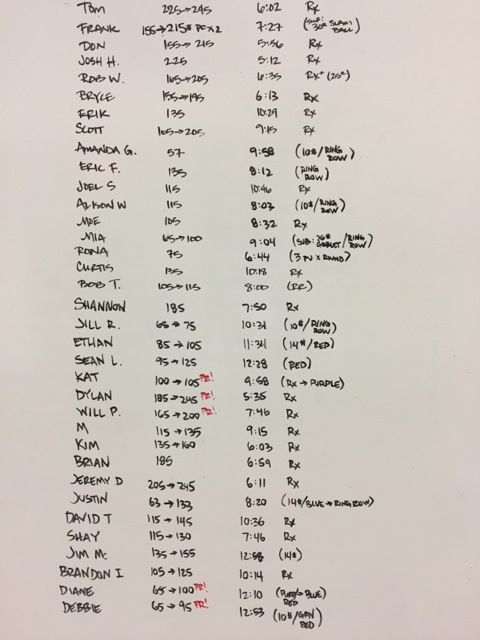 TOM 225→245 6:02 Rx
FRANK 155→215# PC x 2 7:27 (SUB: 30# SLAM BALL)
DON 155→215 5:56 Rx
JOSH H. 225 5:12 Rx
ROB W. 165→205 6:35 Rx+ (25#)
BRYCE 155→195 6:13 Rx
ERIK 135 10:29 Rx
SCOTT 165→205 9:15 Rx
AMANDA G. 57 9:58 (10#/RING ROW)
ERIC F. 135 8:12 (RING ROW)
JOEL S 115 10:46 Rx
ALISON W 115 8:03 (10#/RING ROW)
MOE 105 8:32 Rx
MIA 65→100 9:04 (SUB: 26# GOBLET/RING ROW)
RONA 75 6:44 (3 PU X ROUND)
CURTIS 135 10:18 Rx
BOB T. 105→115 8:00 (RR)
SHANNON 185 7:50 Rx
JILL R. 65→75 10:31 (10#/RING ROW)
ETHAN 85→105 11:34 (14#/RED)
SEAN L. 95→125 12:28 (RED)
KAT 100→105 PR! 9:58 (Rx→PURPLE)
DYLAN 185→245 PR! 5:35 Rx
WILL P. 165→200 PR! 7:46 Rx
M 115→135 9:15 Rx
KIM 135→160 6:03 Rx
BRIAN 185 6:59 Rx
JEREMY D 205→245 6:11 Rx
JUSTIN 63→133 8:20 (14#/BLUE→RING ROW)
DAVID T 115→145 10:36 Rx
SHAY 115→130 7:46 Rx
JIM Mc 135→155 12:58 (14#)
BRANDON I 105→125 10:14 Rx
DIANE 65→100 PR! 12:10 (PURP→BLUE) RED
DEBBIE 65→95 PR! 12:53 (10#/GRN RED)